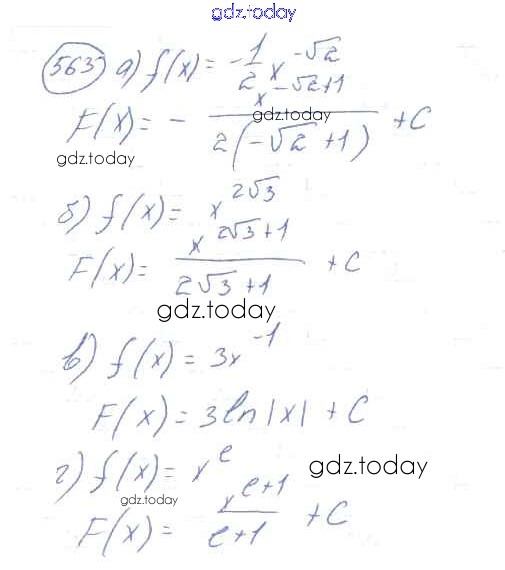 gdz.today
563 а) f(x) = -1/2 x^(-√2)
F(x) = - x^(-√2+1) / 2(-√2+1) + C
gdz.today
gdz.today
б) f(x) = x^(2√3)
F(x) = x^(2√3+1) / 2√3+1 + C
gdz.today
в) f(x) = 3x^(-1)
F(x) = 3ln|x| + C
г) f(x) = x^e
gdz.today
gdz.today
F(x) = x^(e+1) / e+1 + C